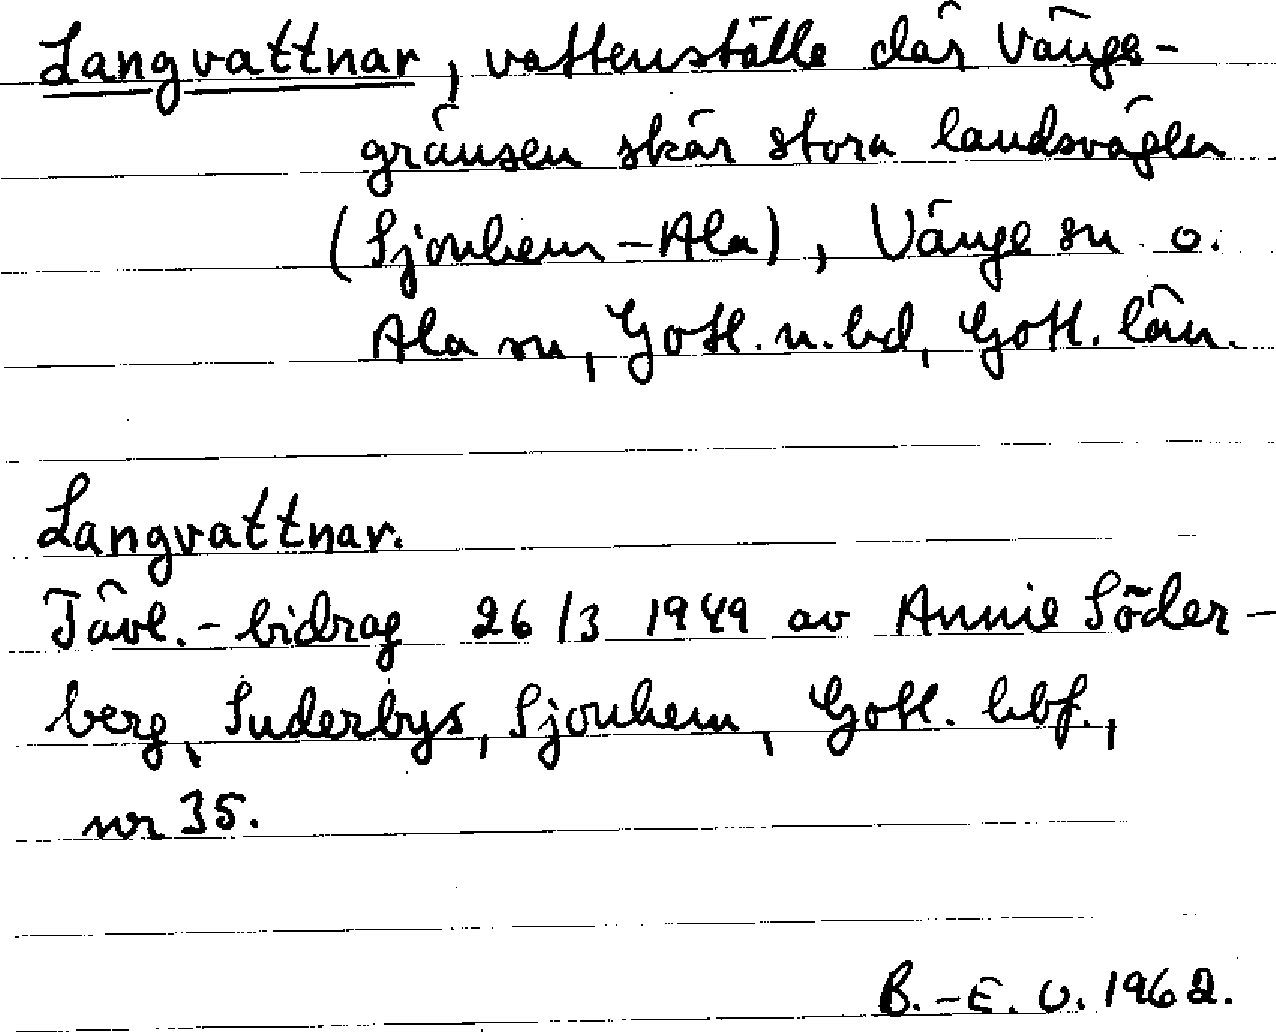 Langvattnar, vattenställe där Vänge-
gränsen skär stora landsvägen
(Sjonhem-Ala), Vänge sn o.
Ala sn, Gotl. n. hd, Gotl. län.
Langvattnar.
Tävl.-bidrag 26/3 1949 av Annie Söder-
berg, Suderbys, Sjonhem, Gotl. hbf.,
nr 35.
B.-E. O. 1962.